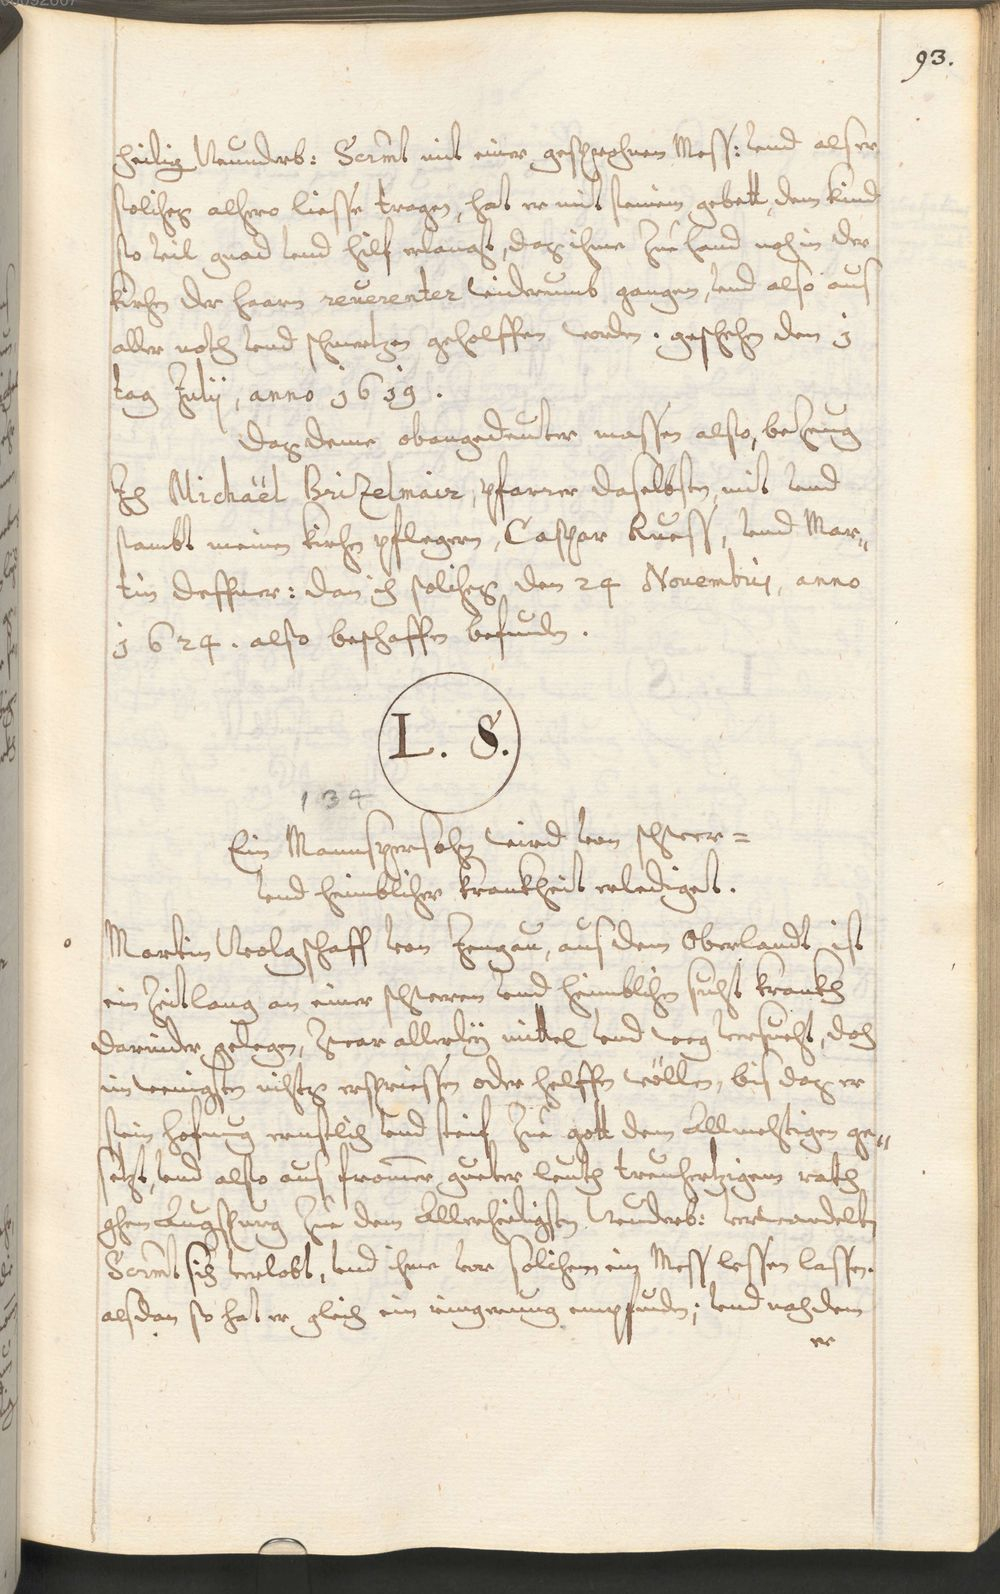 93.
heilig Wunderb: Scrmt mit einer gesprochnen Mess: vnd als er
soliches alhero liesse tragen, hat er mit seinem gebett, dem kind
so vil gnad vnd hilf erlangt, daz ihme Zue hand noch in der
kirchen der harn reuerenter widerumb gangen, vnd also aus
aller noth vnd schmertzen geholffen worden. geschechen den j
tag Julij, anno j6j9.
Daz deme obangedeuter massen also, bezeug
Ich Michaël Brizelmair, pfarrer daselbsten, mit vnd
sambt meinen kirchen pflegern, Caspar Ruess, vnd Mar„
tin Deffner: dan ich soliches den 24 Nouembris, anno
j624. also beschaffen befunden.
L. S.
134
Ein Mannspersohn wird von schwer=
vnd heimblicher kranckheit erlediget.
Martin Wolgschaff von Jengau, aus dem Oberlandt ist
ein Zeitlang an einer schweren vnd heimblichen sucht kranck
darnider gelegen, Zwar allerley mittel vnd weg versucht, doch
im wenigsten nichtz erspriessen oder helffen wöllen, bis daz er
sein hofnung ernstlich vnd steif Zue gott dem Allmechtigen ge„
setzt, vnd also aus frommer gueter leuth treuhertzigem rath
ghen Augspurg Zue dem Allerheiligsten Wunderb: verwandelten
Scrmt sich verlobt, vnd ihme vor solichem ein Mess lessen lassen.
alsdan so hat er gleich ein ringerung empfunden; vnd nach dem
er